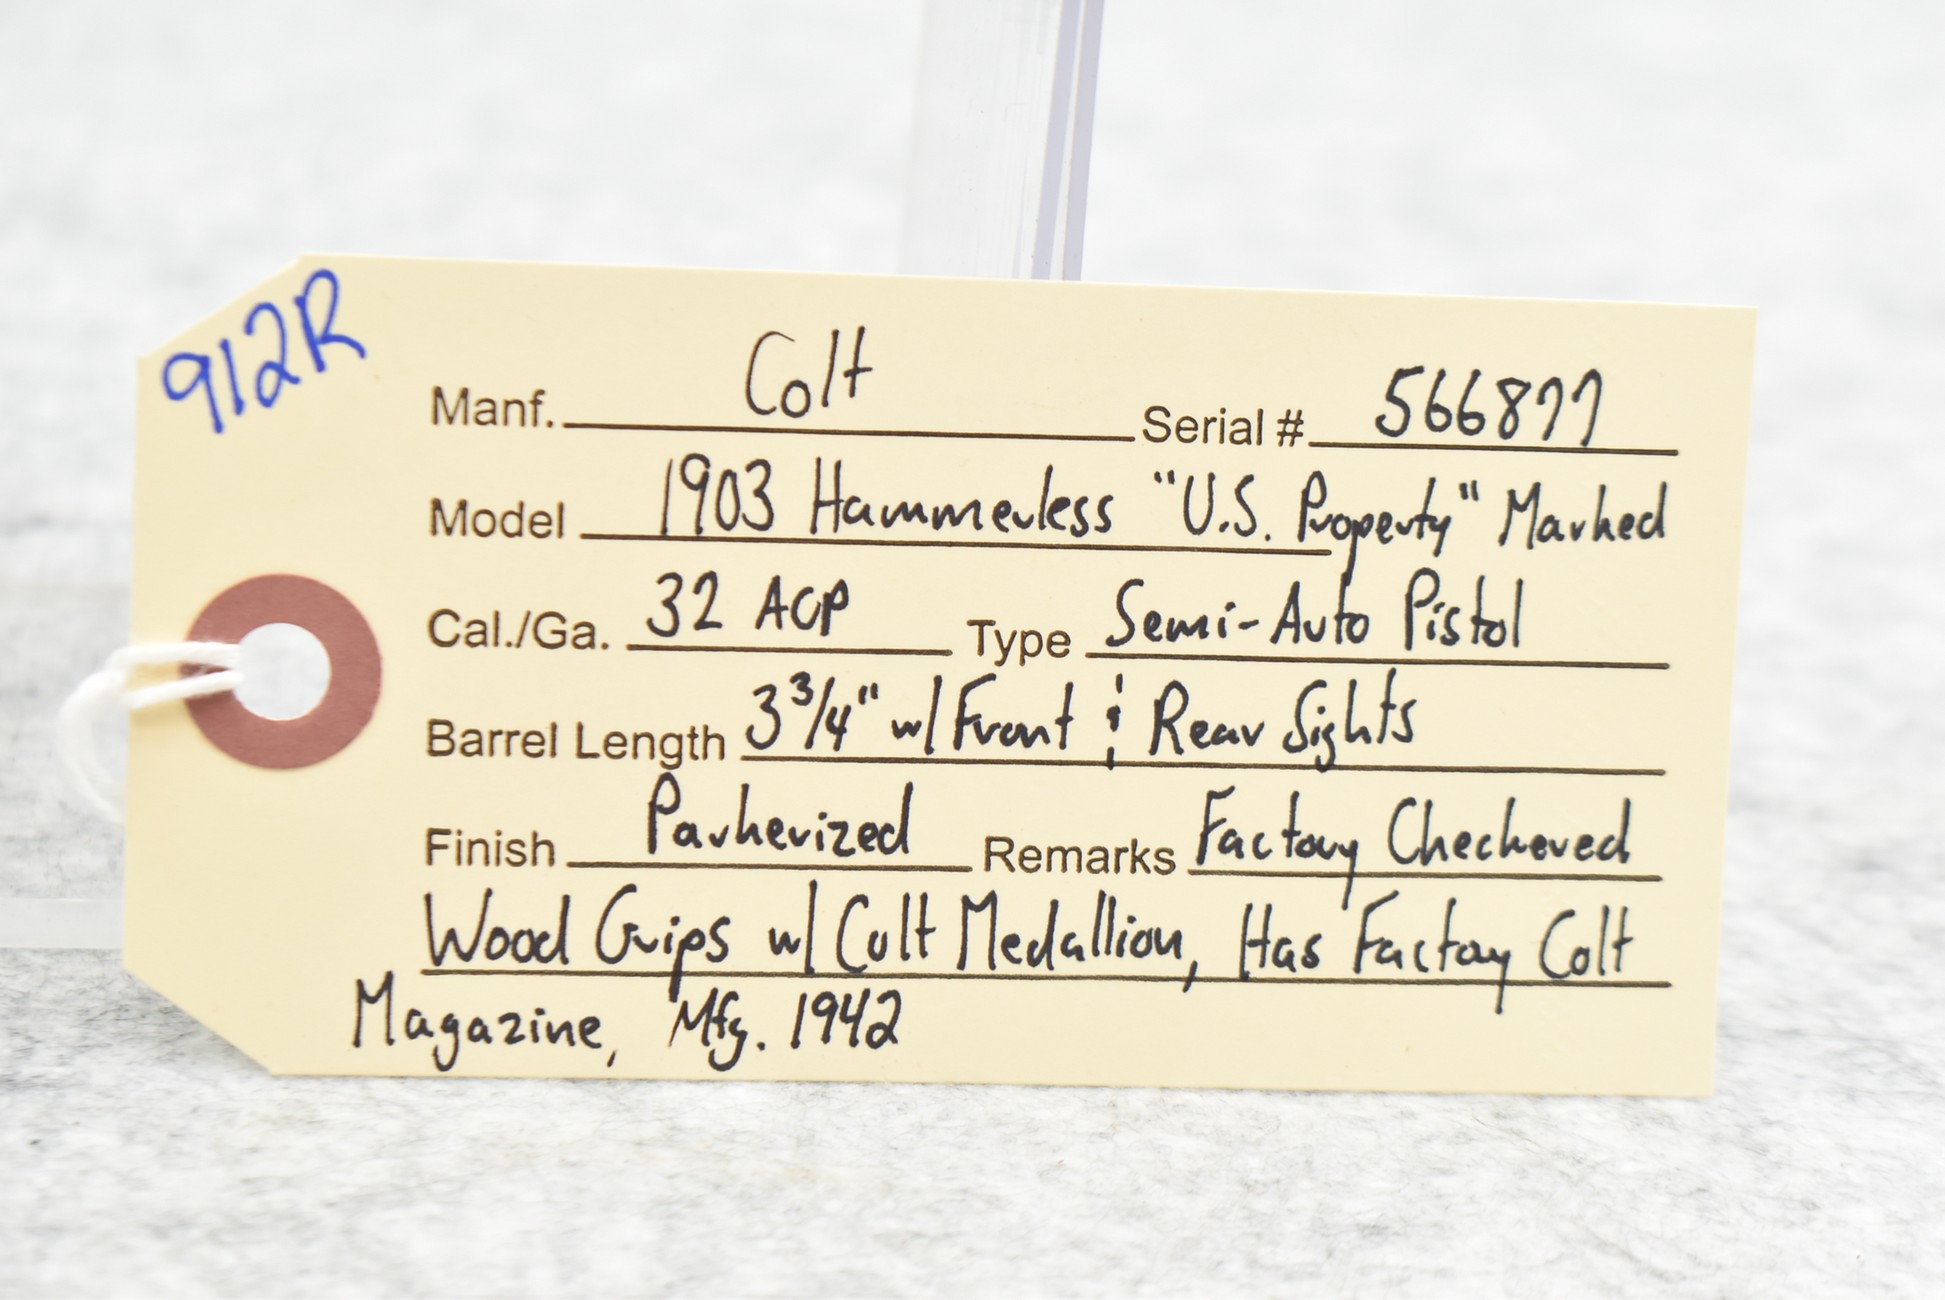 912R
Manf. Colt Serial # 566877
Model 1903 Hammerless "U.S. Property" Marked
Cal./Ga. 32 ACP Type Semi-Auto Pistol
Barrel Length 3 3/4" w/ Front & Rear Sights
Finish Parkerized Remarks Factory Checkered
Wood Grips w/ Colt Medallion, Has Factory Colt
Magazine, Mfg. 1942